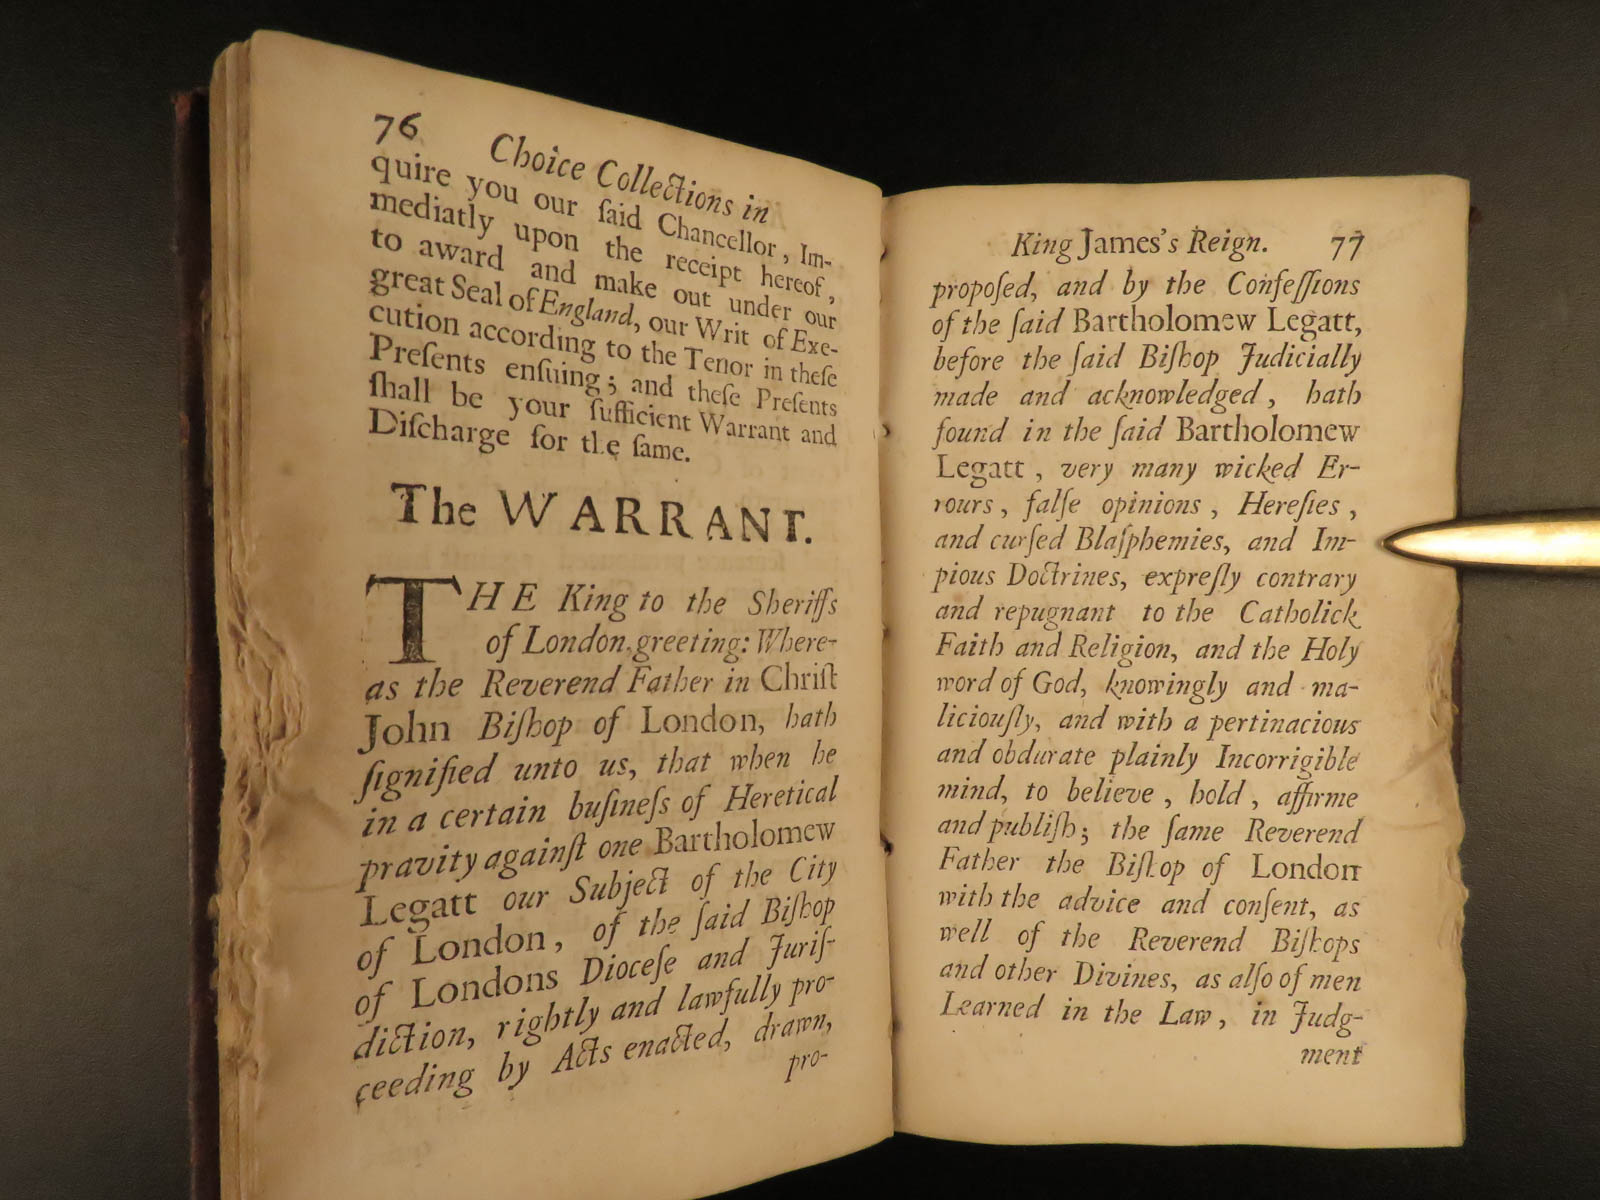 76
Choice Collections in
quire you our ſaid Chancellor, Im-
mediatly upon the receipt hereof,
to award and make out under our
great Seal of England, our Writ of Exe-
cution according to the Tenor in theſe
Preſents enſuing; and theſe Preſents
ſhall be your ſufficient Warrant and
Diſcharge for the ſame.
The WARRANT.
THE King to the Sheriffs
of London, greeting: Where-
as the Reverend Father in Chriſt
John Biſhop of London, hath
ſignified unto us, that when he
in a certain buſineſs of Heretical
pravity againſt one Bartholomew
Legatt our Subject of the City
of London, of the ſaid Biſhop
of Londons Dioceſe and Juriſ-
diction, rightly and lawfully pro-
ceeding by Acts enacted, drawn,
pro-
King James's Reign. 77
propoſed, and by the Confeſſions
of the ſaid Bartholomew Legatt,
before the ſaid Biſhop Judicially
made and acknowledged, hath
found in the ſaid Bartholomew
Legatt, very many wicked Er-
rours, falſe opinions, Hereſies,
and curſed Blaſphemies, and Im-
pious Doctrines, expreſly contrary
and repugnant to the Catholick
Faith and Religion, and the Holy
word of God, knowingly and ma-
liciouſly, and with a pertinacious
and obdurate plainly Incorrigible
mind, to believe, hold, affirme
and publiſh; the ſame Reverend
Father the Biſhop of London
with the advice and conſent, as
well of the Reverend Biſhops
and other Divines, as alſo of men
Learned in the Law, in Judg-
ment